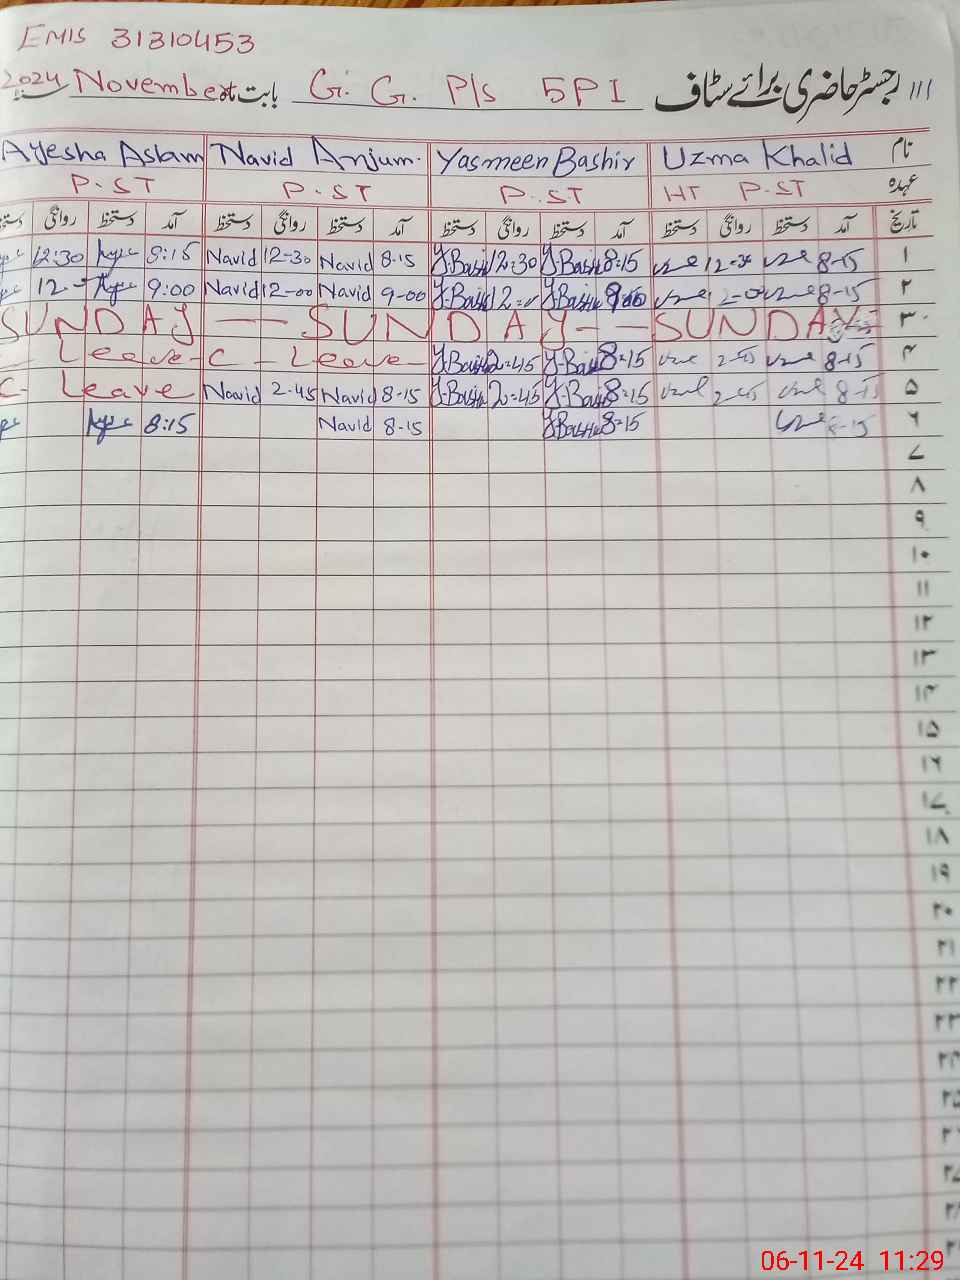 EMIS 31310453
رجسٹر حاضری برائے سٹاف G. G. P/s 5PI بابت ماہ November 2024
نام Uzma Khalid Yasmeen Bashir Navid Anjum. Ayesha Aslam
عہدہ HT P.ST P.ST P.ST P.ST
تاریخ آمد دستخط روانگی دستخط آمد دستخط روانگی دستخط آمد دستخط روانگی دستخط آمد دستخط روانگی
۱ 8-15 12-30 8=15 Y.Bashir 12=30 Y.Bashir 8.15 Navid 12-30 Navid 8:15 12:30
۲ 8-15 Y.Bashir Y.Bashir 9-00 Navid 12-00 Navid 9:00
۳ SUNDAY -- SUNDAY -- SUNDAY
۴ 8-15 2-45 8=15 Y.Bashir 2=45 Y.Bashir C - Leave - Leave -
۵ 8-15 2-45 8=15 Y.Bashir 2=45 Y.Bashir 8-15 Navid 2-45 Navid C- Leave
۶ 8-15 8=15 Y.Bashir 8-15 Navid 8:15
۷
۸
۹
۱۰
۱۱
۱۲
۱۳
۱۴
۱۵
۱۶
۱۷
۱۸
۱۹
۲۰
۲۱
۲۲
۲۳
۲۴
۲۵
۲۶
۲۷
۲۸
06-11-24 11:29